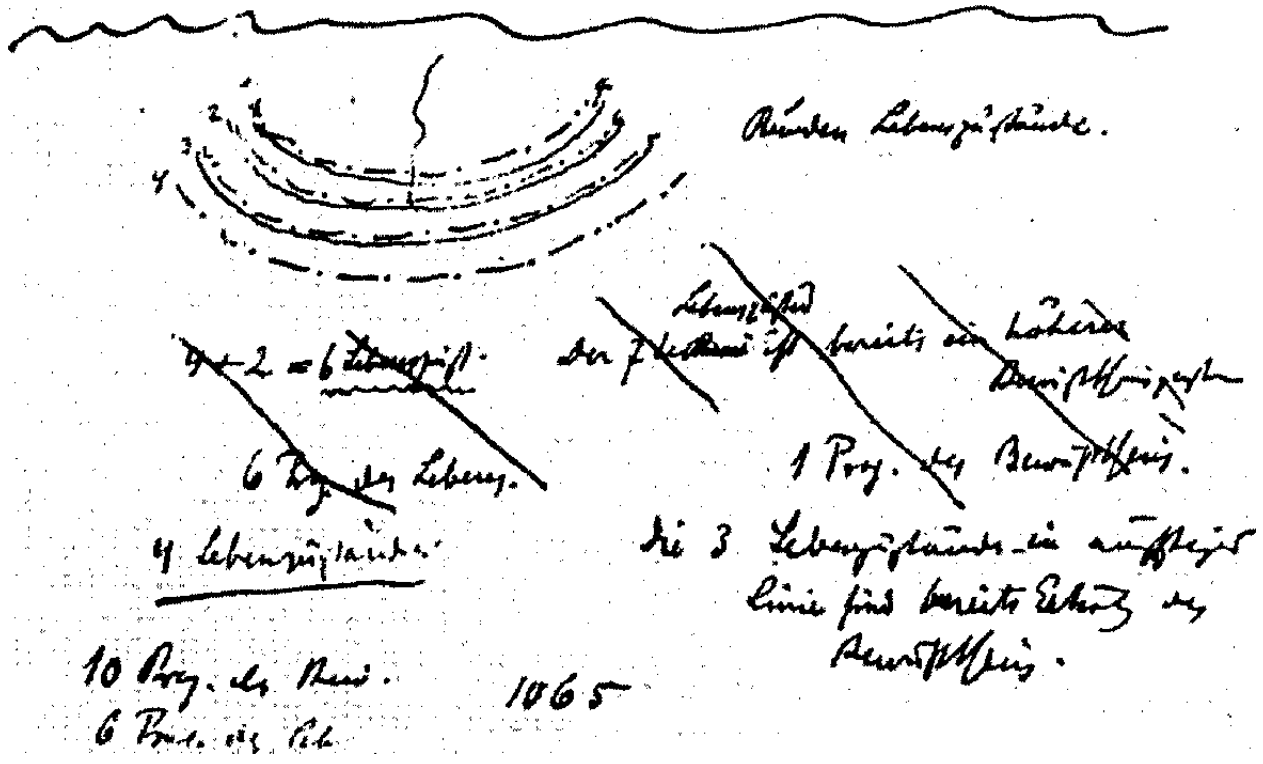 1
2
3
4
4
5
6
7
Runden Lebenszustände.
Lebenszustd
4 + 2 = 6 Lebenszust.
Der 7te ist bereits ein höherer
Bewußtseinszustand
6 Prg. des Lebens.
1 Prog. des Bewußtseins.
4 Lebenszustände
Die 3 Lebenszustände in aufsteigend
Linie sind bereits des
Bewußtseins.
10 Prog. des
1065
6 des